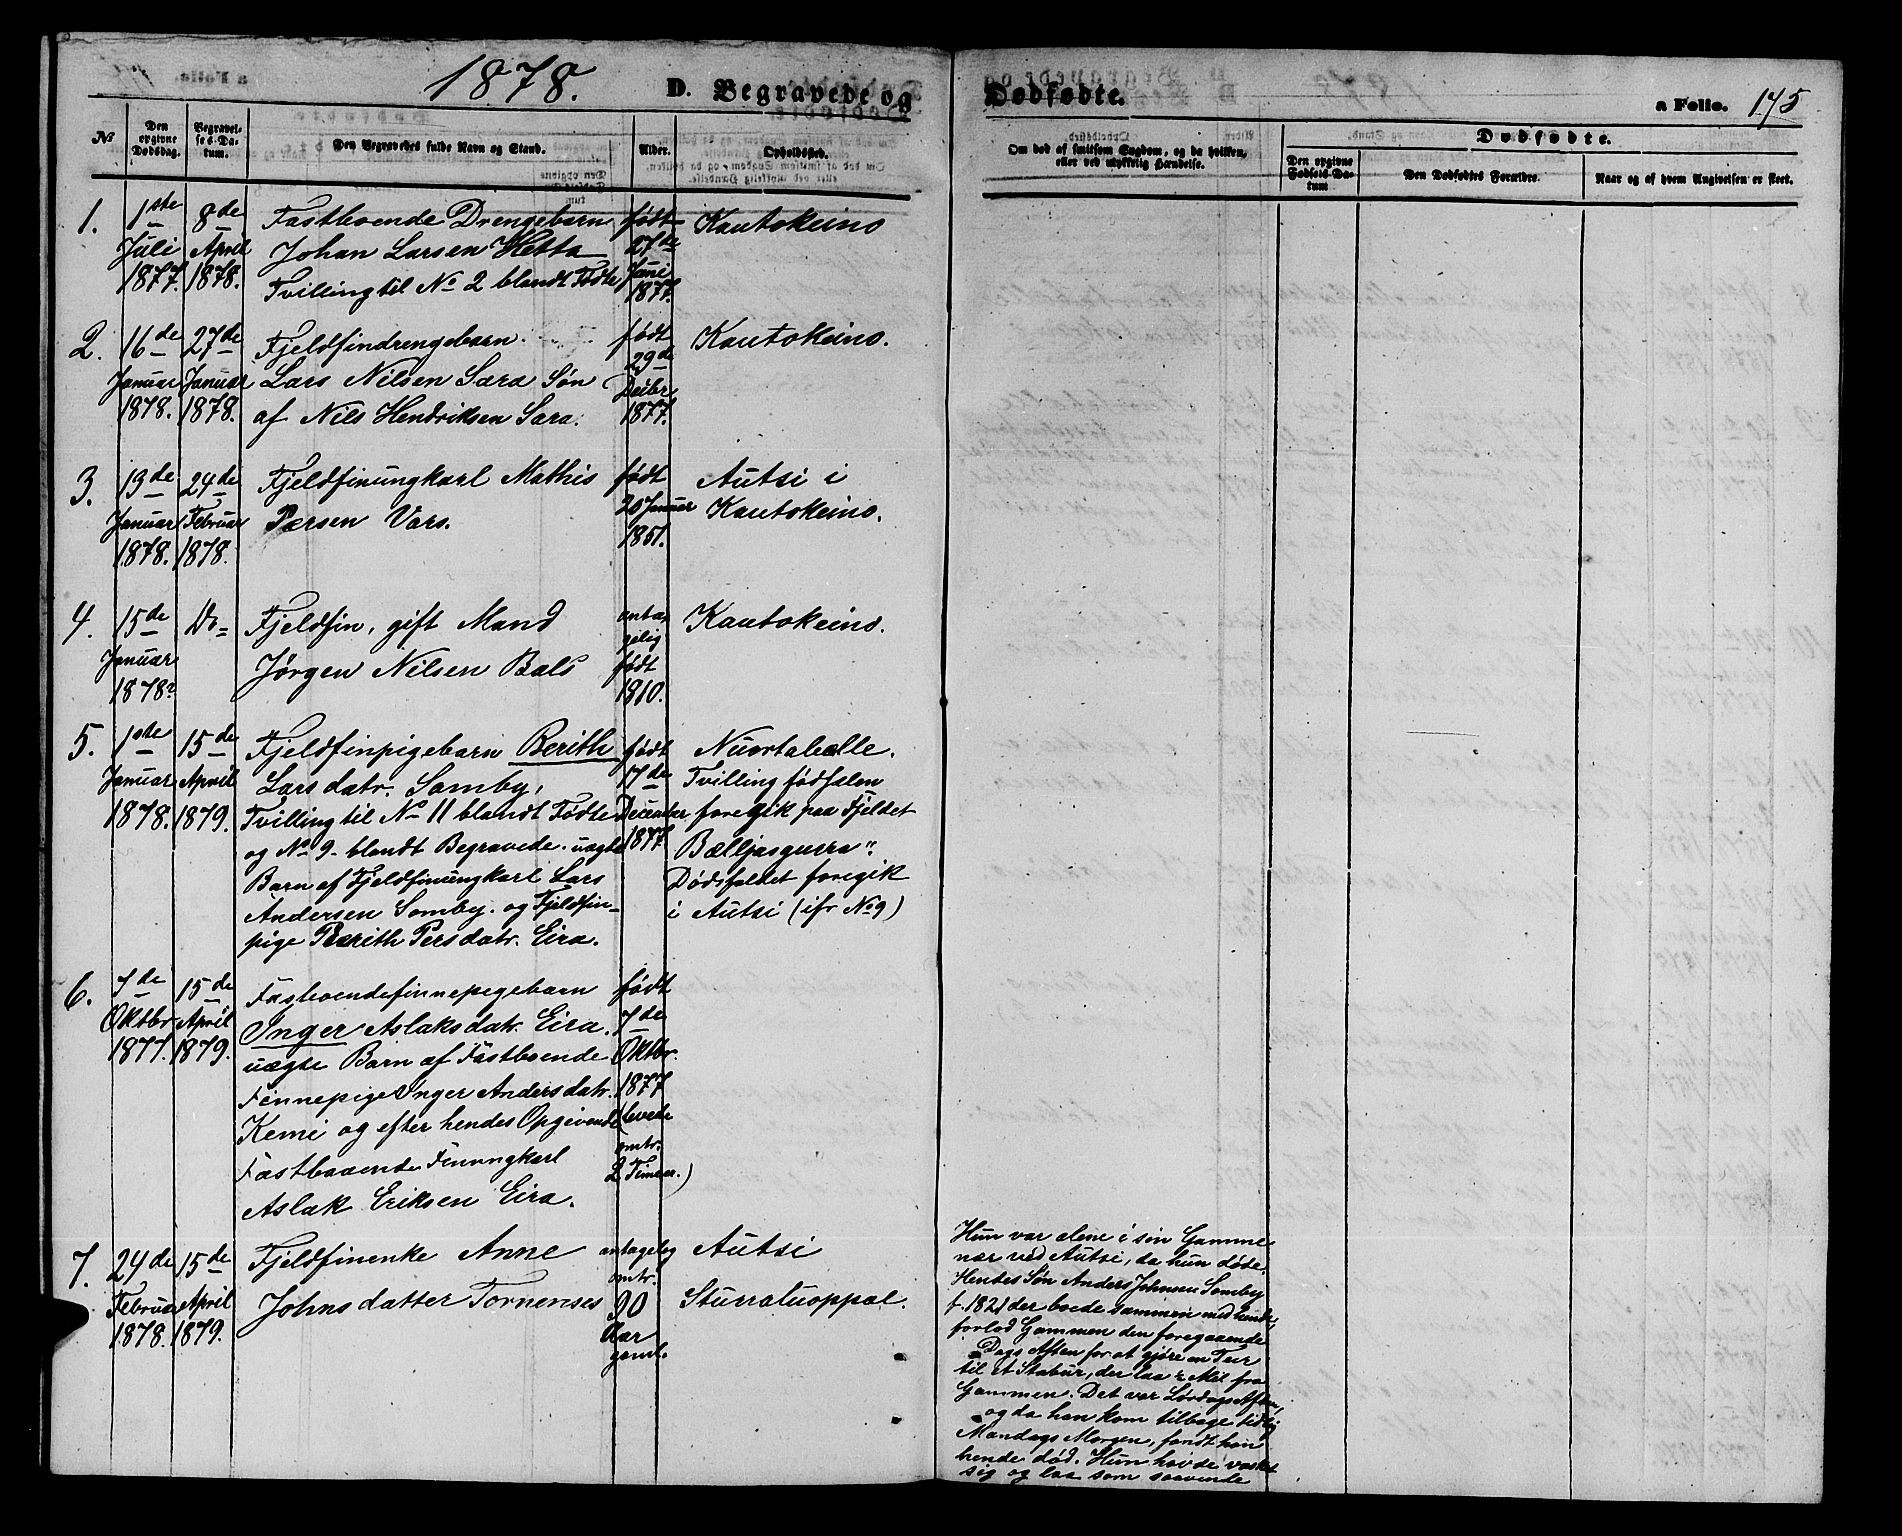 1878.
D. Begravede og
Dødfødte.
a Folio. 175
№
Den opgivne Dødsdag.
Begravelses-Datum.
Den Begravedes fulde Navn og Stand.
Alder.
Opholdssted.
Om død af smitsom Sygdom, og da hvilken, eller ved ulykkelig Hændelse.
Dødfødte.
Den opgivne Fødsels-Datum
Den Dødfødtes Forældre.
Naar og af hvem Angivelsen er skeet.
1. 1ste 8de Fastboende Drengebarn født Kautokeino
Juli April Johan Larsen Hetta 27de
1877. 1878. Tvilling til No 2 blandt Fødte Juni
1877.
2. 16de 27de Fjeldfindrengebarn. født Kautokeino.
29de
Januar Januar Lars Nilsen Sara Søn Decbr
1878. 1878. af Nils Hendriksen Sara. 1877.
3. 13de 24de Fjeldfinungkarl Mathis født Autsi i
Januar Februar Persen Vars. 20 Januar Kautokeino.
1878. 1878. 1851.
4. 15de Do= Fjeldfin, gift Mand anta- Kautokeino.
gelig
Januar Jørgen Nilsen Bals født
1878? 1810.
5. 1ste 15de Fjeldfinpigebarn Berith født Nuortabelle.
Januar April Larsdatr. Somby, 17de Tvillingfødselen
1878. 1879. Tvilling til No 11 blandt Fødte December foregik paa Fjeldet
og No 9 blandt Begravede. uægte 1877 Bælljasguvra".
Barn af Fjeldfinungkarl Lars Dødsfaldet foregik
Andersen Somby. og Fjeldfin- i Autsi (jfr No 9)
pige Berith Persdatr. Eira.
6. 7de 15de Fastboendefinnepigebarn født
Oktbr April Inger Aslaksdatr. Eira. 7de
1877. 1879. uægte Barn af Fastboende Oktbr.
Finnepige Inger Andersdatr. 1877
Kemi og efter hendes Opgivende (levede
omtr.
Fastboende Finungkarl 2 Timer.)
Aslak Eriksen Eira.
7. 24de 15de Fjeldfinenke Anne antagelig Autsi
omtr.
Februar April Johnsdatter Tornenses 90 Sturraluoppal.
1878. 1879. Aar
gaml.
Hun var alene i sin Gamme
nær ved Autsi, da hun døde.
Hendes Søn Anders Johnsen Somby
f. 1821 der boede sammen med hende,
forlod Gammen den foregaaende
Dags Aften for at gjøre en Tur
til et Stabur, der laa ½ Mil fra
Gammen. Det var Lørdags Aften,
og da han kom tilbage tidlig
Mandags Morgen, fandt han
hende død. Hun havde vasket
sig og laa som sovende